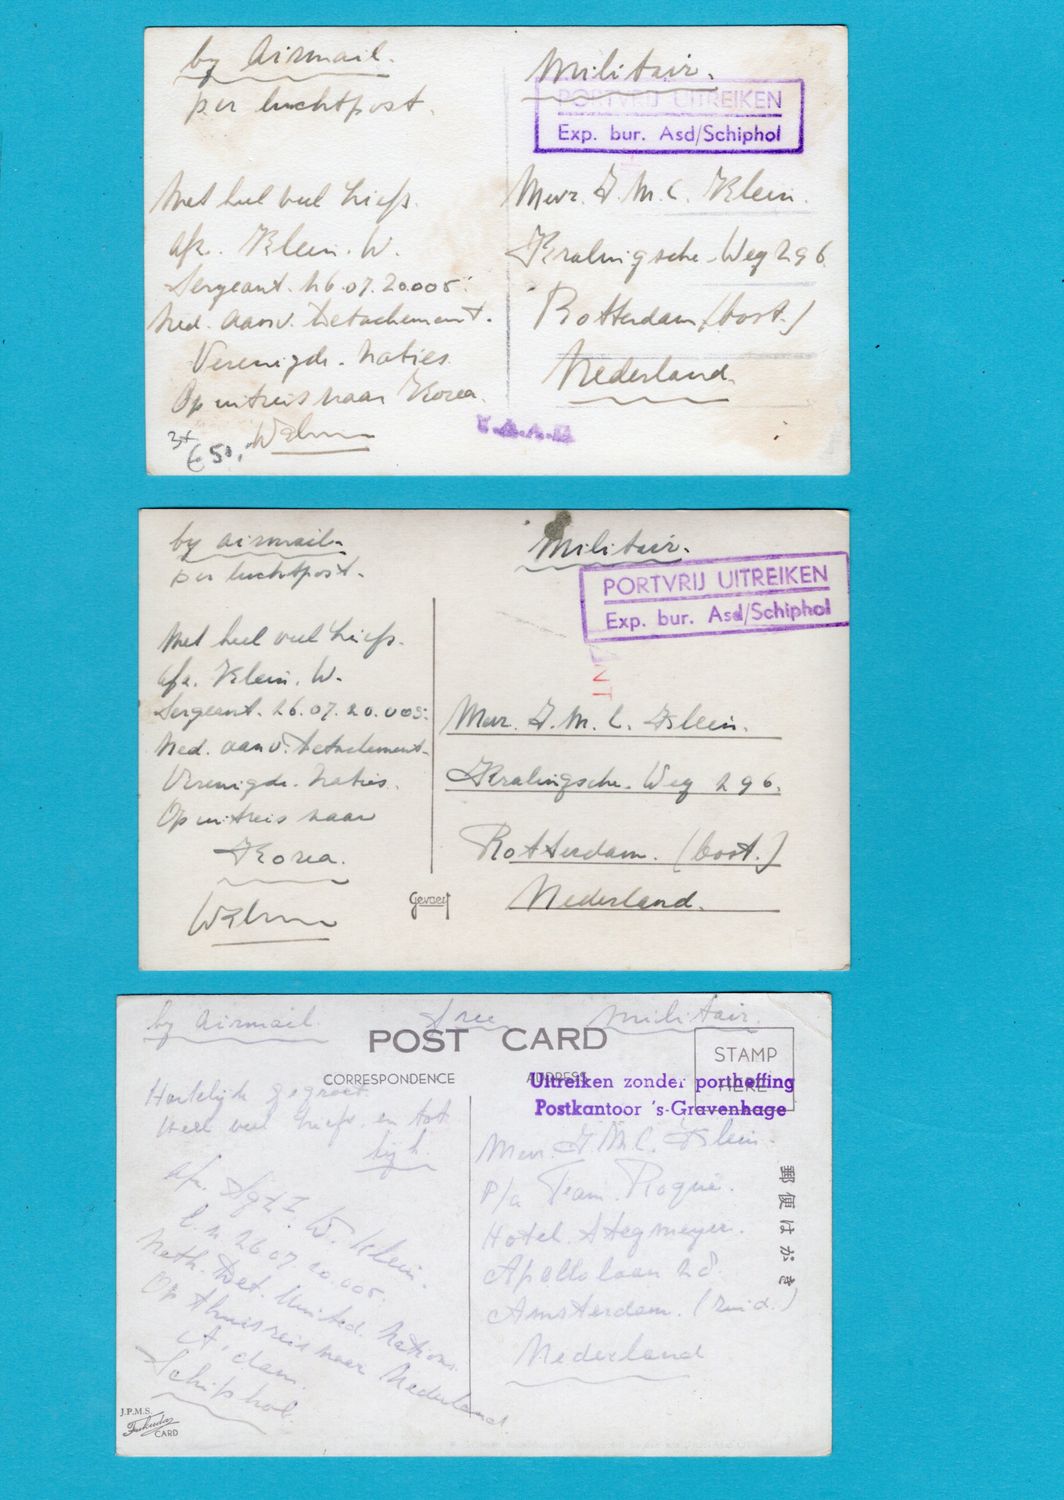 by Airmail.
per luchtpost.
Militair.
PORTVRIJ UITREIKEN
Exp. bur. Asd/Schiphol
Met heel veel liefs.
afz. Klein. W.
Sergeant. 26.07.20.005.
Ned. aanv. Detachement.
Verenigde. Naties.
Op uitreis naar Korea.
3x
€ 50,
Mevr. J. M. C. Klein.
Kralingsche. Weg 296
Rotterdam (oost.)
Nederland.
by airmail.
per luchtpost.
Militair.
PORTVRIJ UITREIKEN
Exp. bur. Asd/Schiphol
NT
Met heel veel liefs.
afz. Klein. W.
Sergeant. 26.07.20.005.
Ned. aanv. Detachement.
Verenigde. Naties.
Op uitreis naar
Korea.
Gevaert
Mevr. J. M. C. Klein.
Kralingsche. Weg 296.
Rotterdam. (oost.)
Nederland.
by airmail. free Militair.
POST CARD
STAMP
HERE
CORRESPONDENCE
ADDRESS
Uitreiken zonder portheffing
Postkantoor 's-Gravenhage
Hartelijk gegroet.
Heel veel liefs en tot
kijk.
afz. Sgt I. W. Klein.
L.n 26.07.20.005.
Neth. Det. United. Nations.
Op thuisreis naar Nederland
A'dam.
Schiphol.
Mevr. J. M. C. Klein.
P/a Team.
Hotel. Stegmeyer.
Apollolaan 28.
Amsterdam. (Zuid.)
Nederland
郵便はがき
J.P.M.S.
Fukuda
CARD